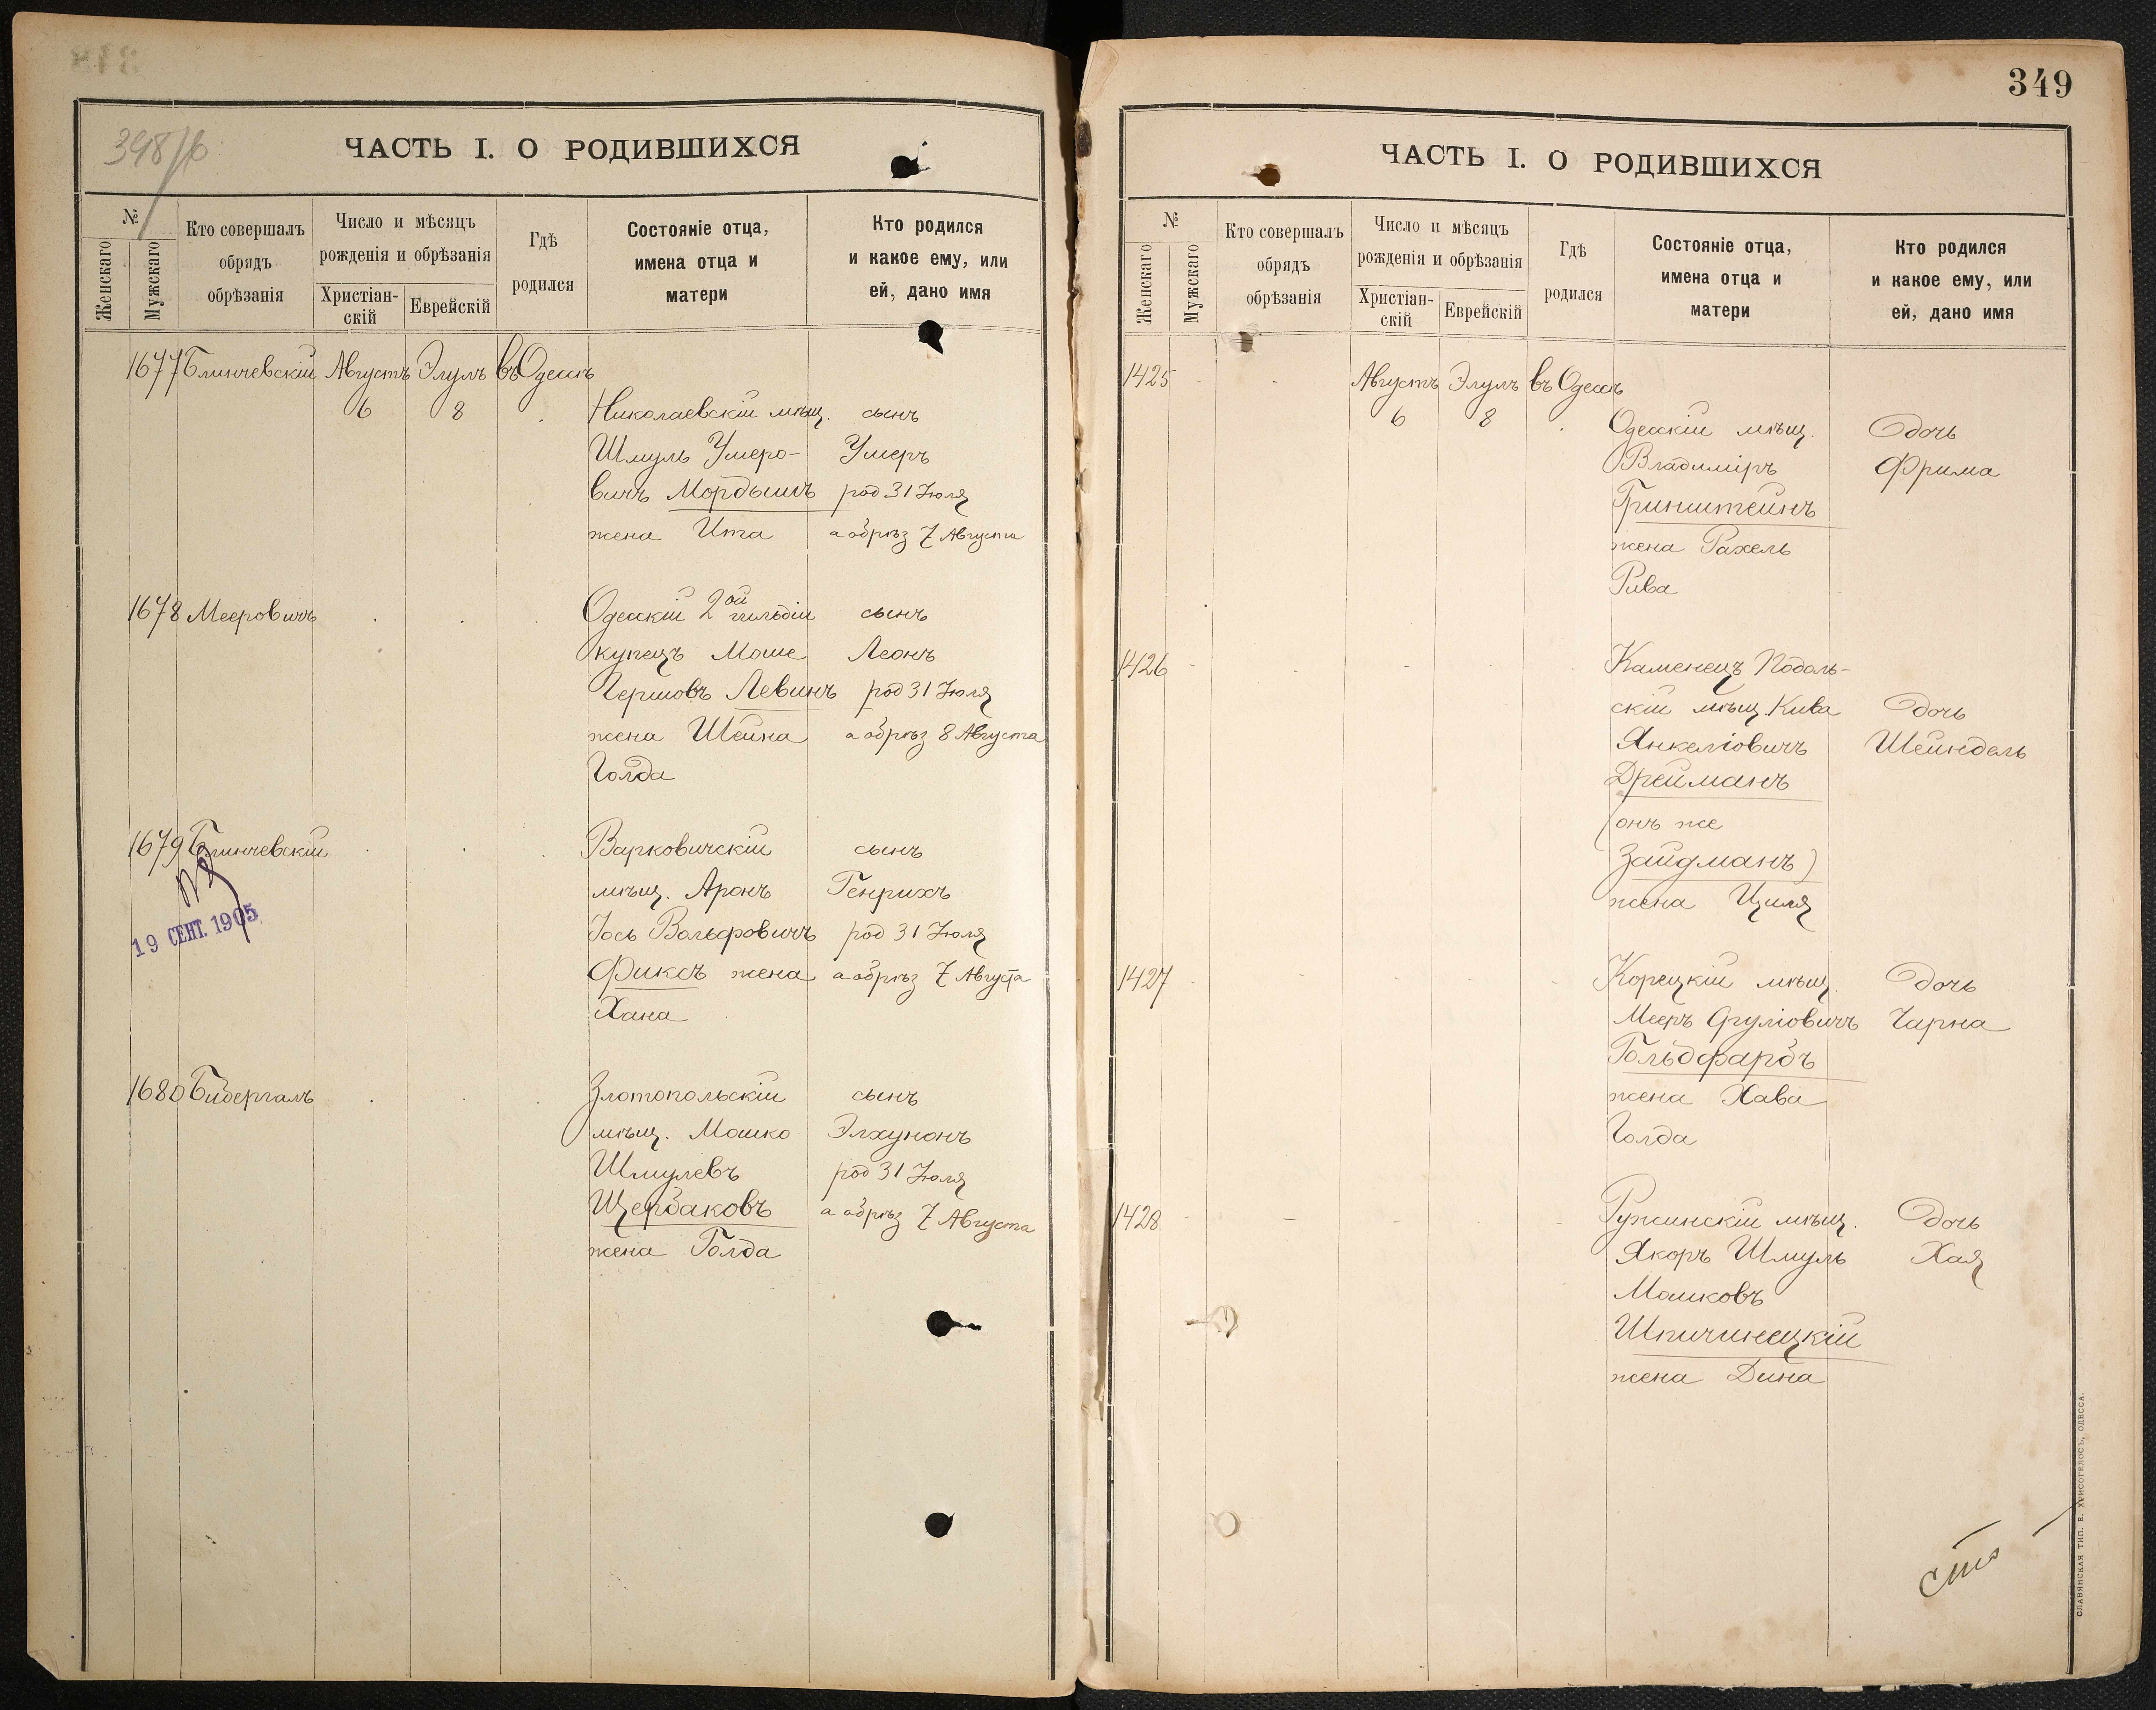 398/б
ЧАСТЬ I. О РОДИВШИХСЯ
№
Женскаго
Мужскаго
Кто совершалъ
обрядъ
обрѣзанія
Число и мѣсяцъ
рожденія и обрѣзанія
Христіан-
скій
Еврейскій
Гдѣ
родился
Состояніе отца,
имена отца и
матери
Кто родился
и какое ему, или
ей, дано имя
1677 Блинчевскій Августъ Элулъ въ Одессѣ
6 8 Николаевскій мѣщ. сынъ
Шмуль Умеро- Умеръ
вичъ Мордышъ род 31 Іюля
жена Ита а обрѣз 7 Августа
1678 Мееровичъ Одесскій 2ой гильдіи сынъ
купецъ Моше Леонъ
Гершовъ Левинъ род 31 Іюля
жена Шейна а обрѣз 8 Августа
Голда
1679 Блинчевскій Варковичскій сынъ
мѣщ. Аронъ Генрихъ
Іось Вольфовичъ род 31 Іюля
19 СЕНТ. 1905
Фиксъ жена а обрѣз 7 Августа
Хана
1680 Бибергалъ Златопольскій сынъ
мѣщ. Мошко Элхунонъ
Шмулевъ род 31 Іюля
Щербаковъ а обрѣз 7 Августа
жена Голда
349
ЧАСТЬ I. О РОДИВШИХСЯ
№
Женскаго
Мужскаго
Кто совершалъ
обрядъ
обрѣзанія
Число и мѣсяцъ
рожденія и обрѣзанія
Христіан-
скій
Еврейскій
Гдѣ
родился
Состояніе отца,
имена отца и
матери
Кто родился
и какое ему, или
ей, дано имя
1425 - - Августъ Элулъ въ Одессѣ
6 8 Одесскій мѣщ. дочь
Владиміръ Фрима
Гринштейнъ
жена Рахель
Рива
1426 Каменецъ Подоль-
скій мѣщ. Кива дочь
Янкеліовичъ Шейндель
Дрейманъ
(онъ же
Зайдманъ)
жена Циля
1427 Корецкій мѣщ. дочь
Мееръ Сруліовичъ Чарна
Гольдфарбъ
жена Хава
Голда
1428 Ружинскій мѣщ. дочь
Якоръ Шмуль Хая
Мошковъ
Шпичинецкій
жена Дина
СЛАВЯНСКАЯ ТИП. Е. ХРИСОГЕЛОСЪ, ОДЕССА.